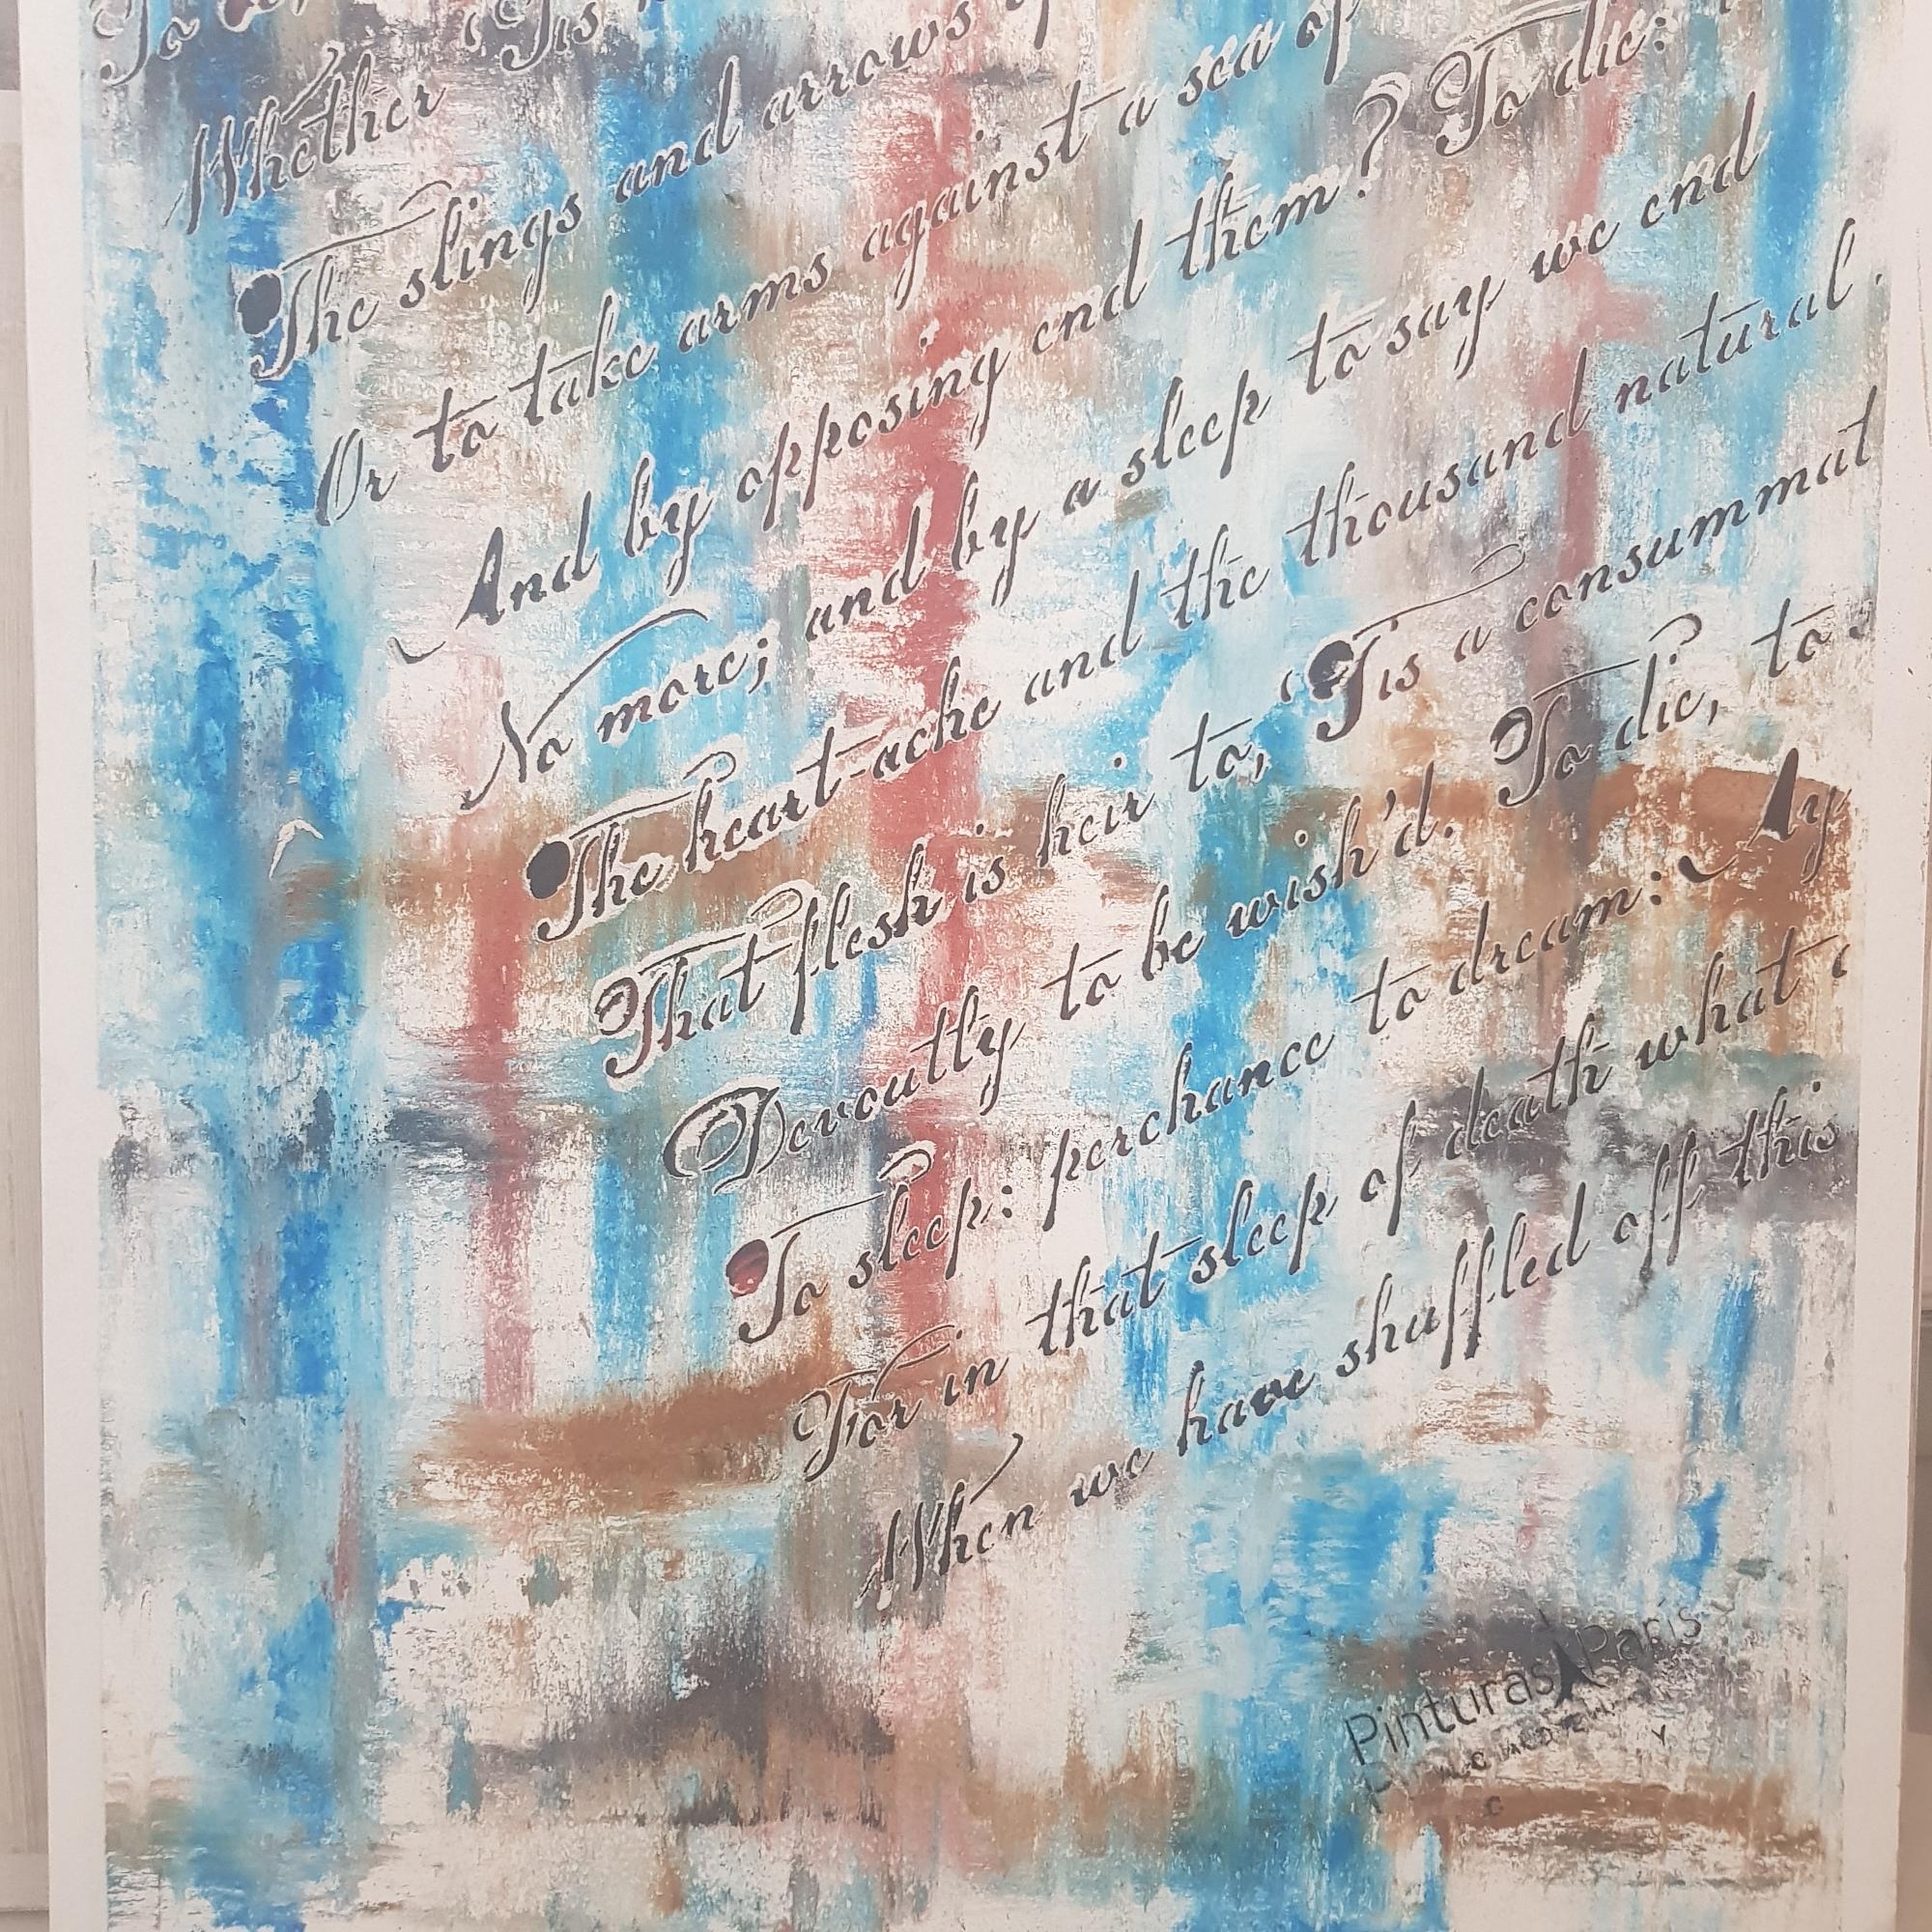 To
Whether 'Tis
The slings and arrows
Or to take arms against a sea of
And by opposing end them? To die:
No more; and by a sleep to say we end
The heart-ache and the thousand natural
That flesh is heir to, 'Tis a consummat
Devoutly to be wish'd. To die, to s
To sleep: perchance to dream: Ay
For in that sleep of death what
When we have shuffled off this
Pinturas Paris